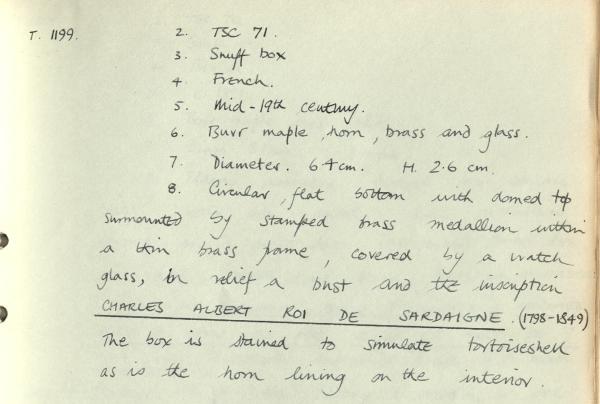 T. 1199.
2. TSC 71.
3. Snuff box
4 French.
5. Mid-19th century.
6. Burr maple, horn, brass and glass.
7. Diameter. 6.4cm. H. 2.6 cm.
8. Circular, flat bottom with domed top
surmounted by stamped brass medallion within
a thin brass frame, covered by a watch
glass, in relief a bust and the inscription
CHARLES ALBERT ROI DE SARDAIGNE. (1798-1849)
The box is stained to simulate tortoiseshell
as is the horn lining on the interior.